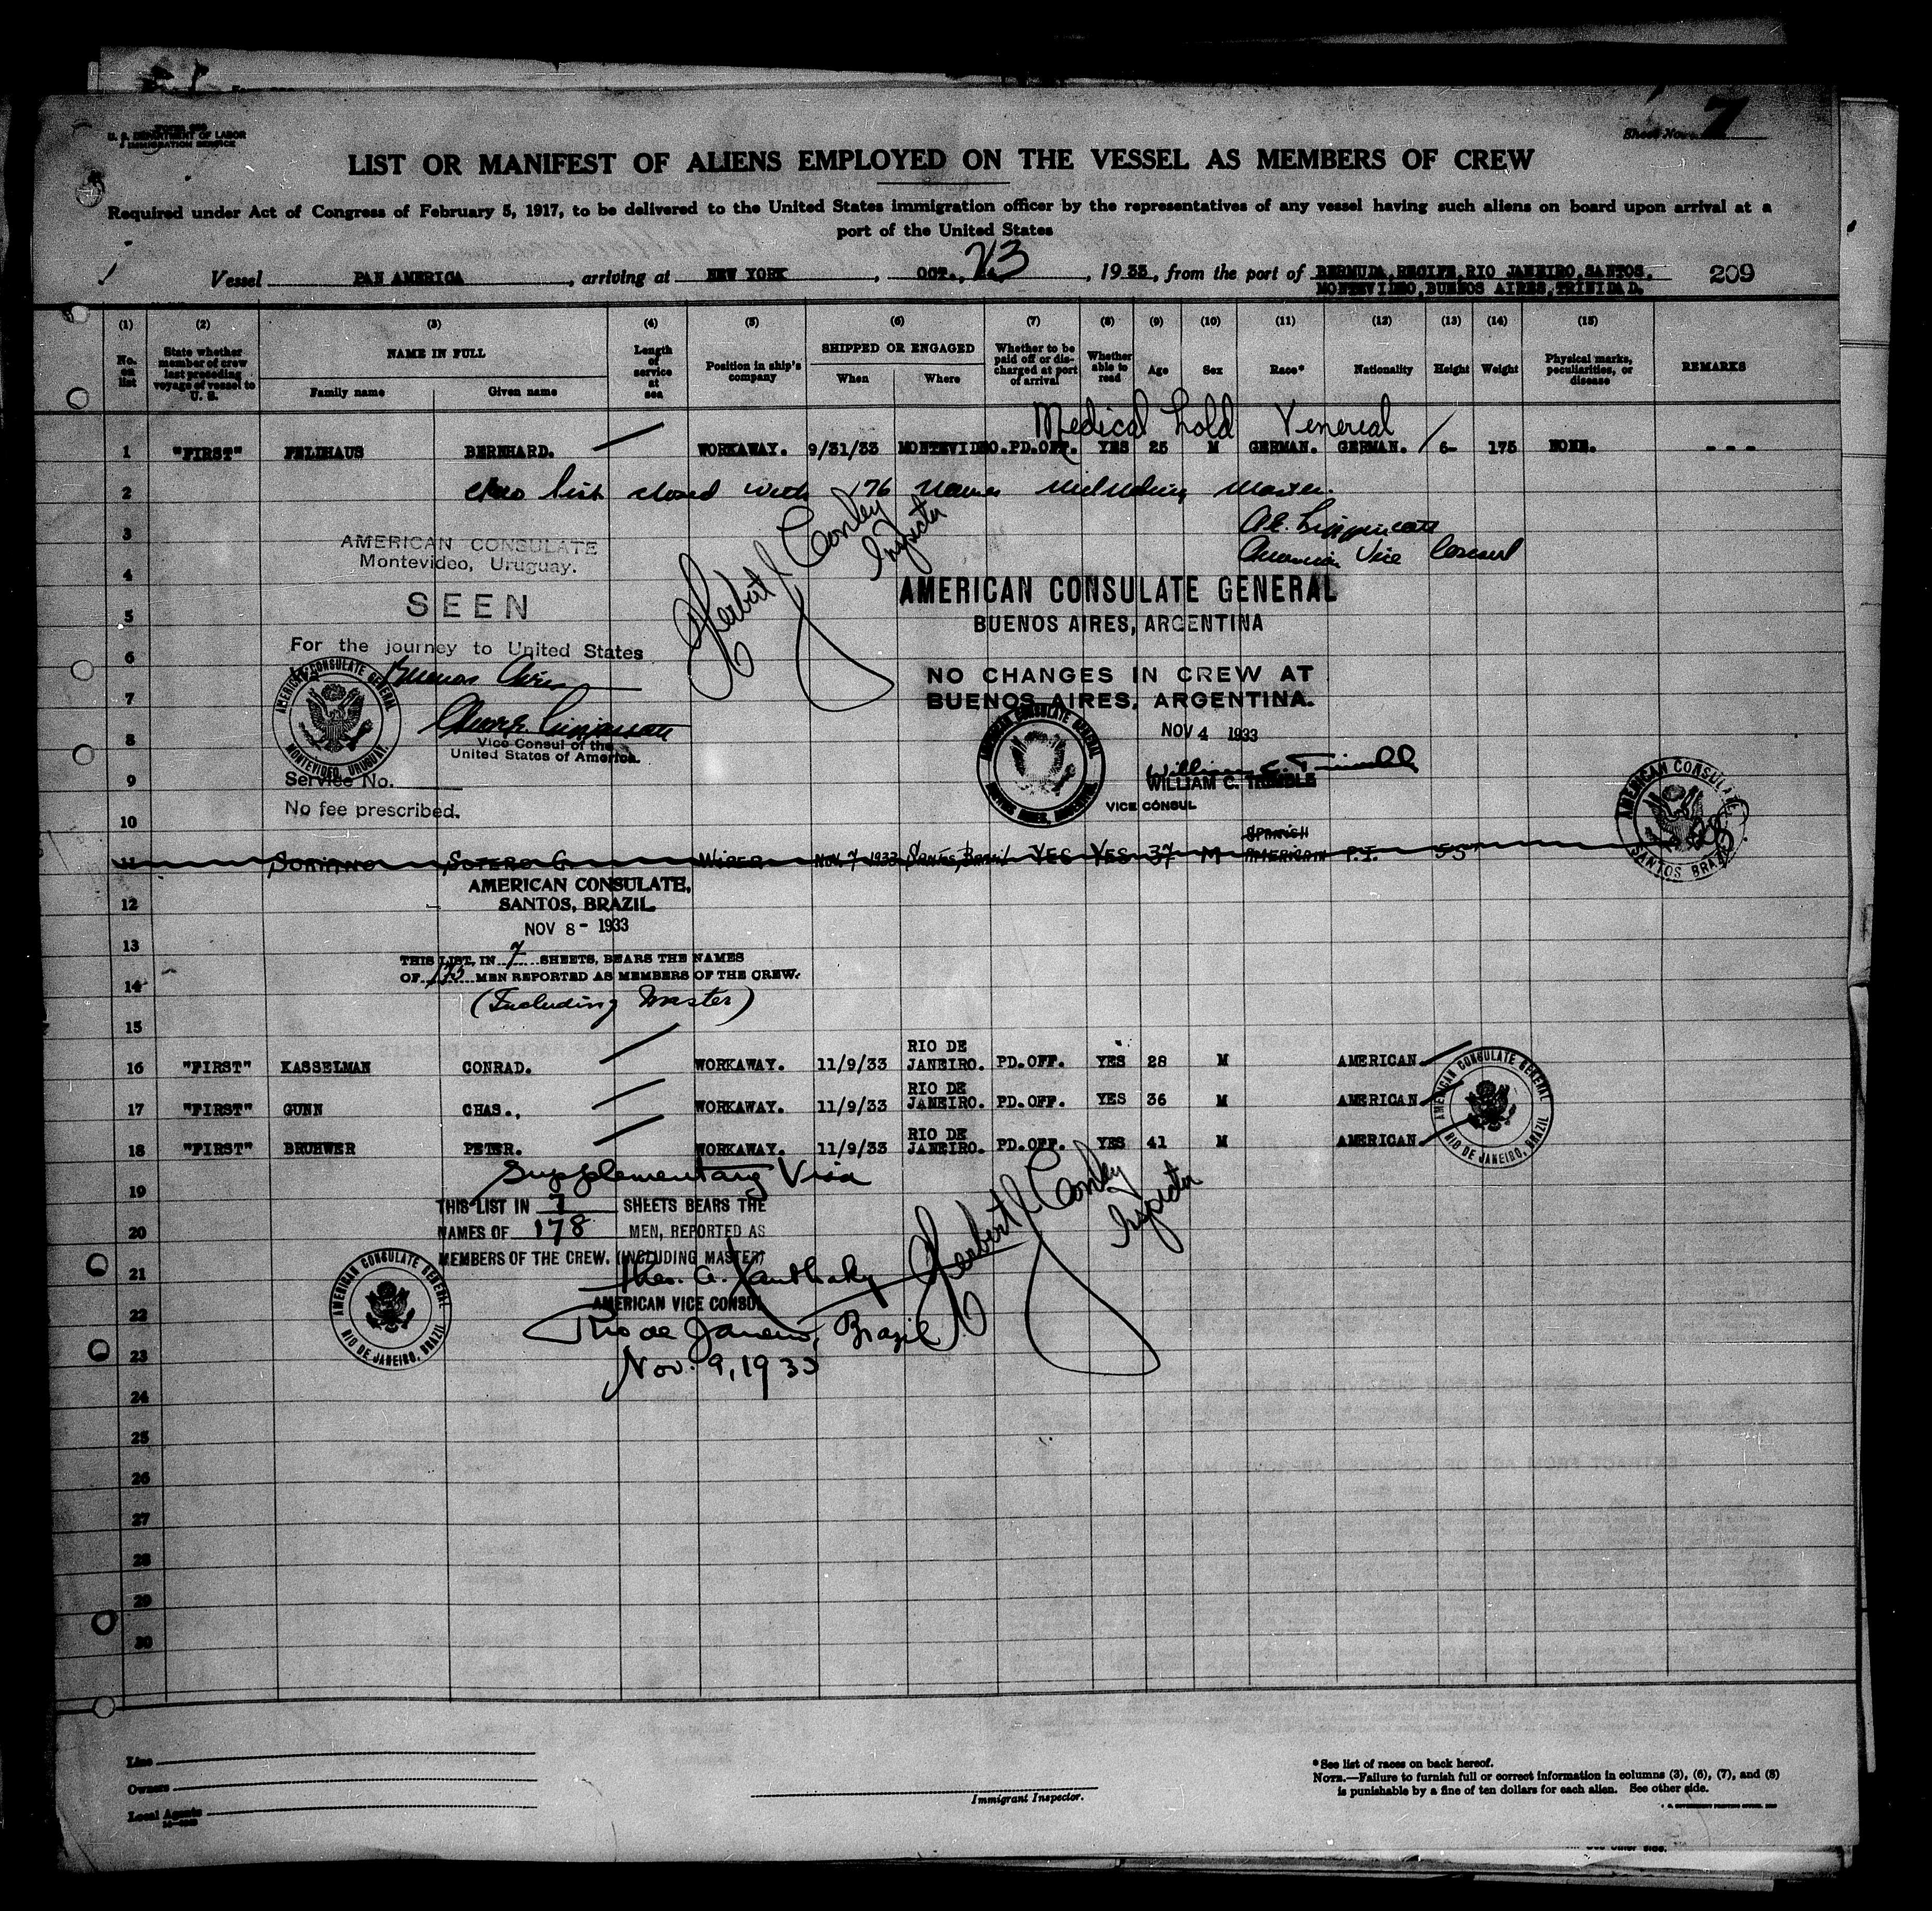 U. S. DEPARTMENT OF LABOR
IMMIGRATION SERVICE
Sheet No. 7
LIST OR MANIFEST OF ALIENS EMPLOYED ON THE VESSEL AS MEMBERS OF CREW
Required under Act of Congress of February 5, 1917, to be delivered to the United States immigration officer by the representatives of any vessel having such aliens on board upon arrival at a
port of the United States
Vessel PAN AMERICA, arriving at NEW YORK, OCT., 23, 1933, from the port of BERMUDA, RECIFE, RIO JANEIRO, SANTOS,
MONTEVIDEO, BUENOS AIRES, TRINIDAD.
209
(1) (2) (3) (4) (5) (6) (7) (8) (9) (10) (11) (12) (13) (14) (15)
No. on list
State whether member of crew last preceding voyage of vessel to U. S.
NAME IN FULL
Family name Given name
Length of service at sea
Position in ship's company
SHIPPED OR ENGAGED
When Where
Whether to be paid off or discharged at port of arrival
Whether able to read
Age Sex Race* Nationality Height Weight
Physical marks, peculiarities, or disease
REMARKS
Medical hold Venereal
1 "FIRST" FELDHAUS BERNHARD. WORKAWAY. 9/31/33 MONTEVIDEO. PD.OFF. YES 25 M GERMAN. GERMAN. 6- 175 NONE. - - -
2 list closed with 176 names including master.
3
Vice Consul
AMERICAN CONSULATE
Montevideo, Uruguay.
4
SEEN
5
For the journey to United States
6
Buenos Aires
7
Vice Consul of the
8
United States of America.
AMERICAN CONSULATE GENERAL MONTEVIDEO, URUGUAY.
9
Service No.
No fee prescribed.
10
Herbert J Conley
Inspector
AMERICAN CONSULATE GENERAL
BUENOS AIRES, ARGENTINA
NO CHANGES IN CREW AT
BUENOS AIRES, ARGENTINA.
NOV 4 1933
AMERICAN CONSULATE GENERAL BUENOS AIRES, ARGENTINA
William C. Trimble
WILLIAM C. TRIMBLE
VICE CONSUL
AMERICAN CONSULATE SANTOS BRAZIL
SPANISH
11 SORIANO SOTERO G. WIPER NOV. 7 1933 SANTOS, BRAZIL YES YES 37 M AMERICAN P.I. 5 5
AMERICAN CONSULATE,
12
SANTOS, BRAZIL
NOV 8 - 1933
13
THIS LIST, IN 7 SHEETS, BEARS THE NAMES
OF 175 MEN REPORTED AS MEMBERS OF THE CREW.
14
(Including Master)
15
16 "FIRST" KASSELMAN CONRAD. WORKAWAY. 11/9/33 RIO DE JANEIRO. PD.OFF. YES 28 M AMERICAN
17 "FIRST" GUNN CHAS., WORKAWAY. 11/9/33 RIO DE JANEIRO. PD.OFF. YES 36 M AMERICAN
18 "FIRST" BRUHWER PETER. WORKAWAY. 11/9/33 RIO DE JANEIRO. PD.OFF. YES 41 M AMERICAN
AMERICAN CONSULATE GENERAL RIO DE JANEIRO, BRAZIL
Supplementary Visa
19
THIS LIST IN 7 SHEETS BEARS THE
20
NAMES OF 178 MEN, REPORTED AS
MEMBERS OF THE CREW. (INCLUDING MASTER)
21
AMERICAN VICE CONSUL
22
Rio de Janeiro, Brazil
23
Nov. 9, 1933
AMERICAN CONSULATE GENERAL RIO DE JANEIRO, BRAZIL
Herbert J Conley
Inspector
24
25
26
27
28
29
30
Line
Owners
Local Agents
Immigrant Inspector.
*See list of races on back hereof.
NOTE.—Failure to furnish full or correct information in columns (3), (6), (7), and (8)
is punishable by a fine of ten dollars for each alien. See other side.